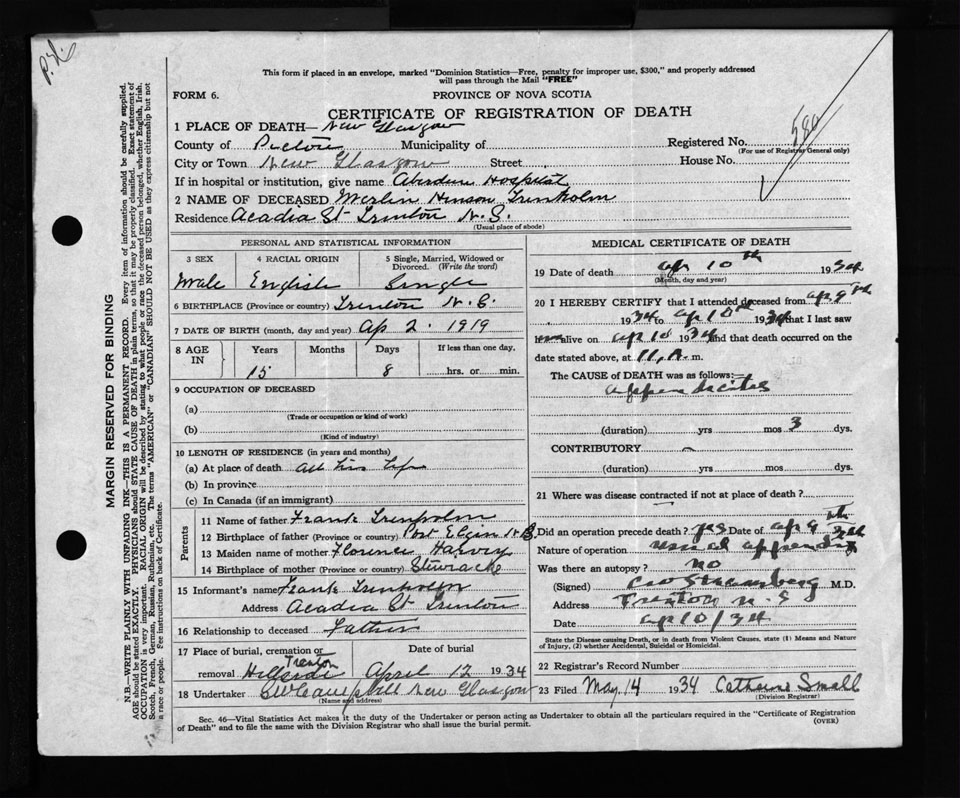 This form if placed in an envelope, marked "Dominion Statistics—Free, penalty for improper use, $300," and properly addressed
will pass through the Mail "FREE"
FORM 6. PROVINCE OF NOVA SCOTIA
CERTIFICATE OF REGISTRATION OF DEATH
580
1 PLACE OF DEATH— New Glasgow
County of Pictou Municipality of Registered No.
(For use of Registrar General only)
City or Town New Glasgow Street House No.
If in hospital or institution, give name Aberdeen Hospital
2 NAME OF DECEASED Merlin Henson Trenholm
Residence Acadia St Trenton N.S.
(Usual place of abode)
PERSONAL AND STATISTICAL INFORMATION
3 SEX 4 RACIAL ORIGIN 5 Single, Married, Widowed or
Divorced. (Write the word)
Male English Single
6 BIRTHPLACE (Province or country) Trenton N.S.
7 DATE OF BIRTH (month, day and year) Ap 2. 1919
8 AGE IN Years Months Days If less than one day.
15 8 hrs. or min.
9 OCCUPATION OF DECEASED
(a)
(Trade or occupation or kind of work)
(b)
(Kind of industry)
10 LENGTH OF RESIDENCE (in years and months)
(a) At place of death All his life
(b) In province
(c) In Canada (if an immigrant)
Parents
11 Name of father Frank Trenholm
12 Birthplace of father (Province or country) Port Elgin N.B.
13 Maiden name of mother Florence Harvey
14 Birthplace of mother (Province or country)
15 Informant's name Frank Trenholm
Address Acadia St Trenton
16 Relationship to deceased Father
17 Place of burial, cremation or removal Date of burial
Trenton
Hillside April 12 1934
18 Undertaker Campbell New Glasgow
(Name and address)
MEDICAL CERTIFICATE OF DEATH
19 Date of death Ap 10th 1934
(Month, day and year)
20 I HEREBY CERTIFY that I attended deceased from Ap 9th
1934 to Ap 10th 1934 that I last saw
alive on Ap 10 1934 and that death occurred on the
date stated above, at 11.A. m.
The CAUSE of DEATH was as follows:—
Appendicitis
(duration) yrs mos 3 dys.
CONTRIBUTORY
(duration) yrs mos dys.
21 Where was disease contracted if not at place of death?
Did an operation precede death? yes Date of Ap 9th 34
Nature of operation usual
Was there an autopsy? no
(Signed) M.D.
Address Trenton N.S
Date Ap 10/34
State the Disease causing Death, or in death from Violent Causes, state (1) Means and Nature
of Injury, (2) whether Accidental, Suicidal or Homicidal.
22 Registrar's Record Number
23 Filed May 14 1934 Small
(Division Registrar)
Sec. 46—Vital Statistics Act makes it the duty of the Undertaker or person acting as Undertaker to obtain all the particulars required in the "Certificate of Registration
of Death" and to file the same with the Division Registrar who shall issue the burial permit. (OVER)
MARGIN RESERVED FOR BINDING
N.B.—WRITE PLAINLY WITH UNFADING INK—THIS IS A PERMANENT RECORD. Every item of information should be carefully supplied.
AGE should be stated EXACTLY. PHYSICIANS should STATE CAUSE OF DEATH in plain terms, so that it may be properly classified. Exact statement of
OCCUPATION is very important. RACIAL ORIGIN will be described by stating to what people or race the deceased person belonged, whether English, Irish,
Scotch, French, German, Russian, Ruthenian, etc. The terms "AMERICAN" or "CANADIAN" SHOULD NOT BE USED as they express citizenship but not
a race or people. Fee instructions on back of Certificate.